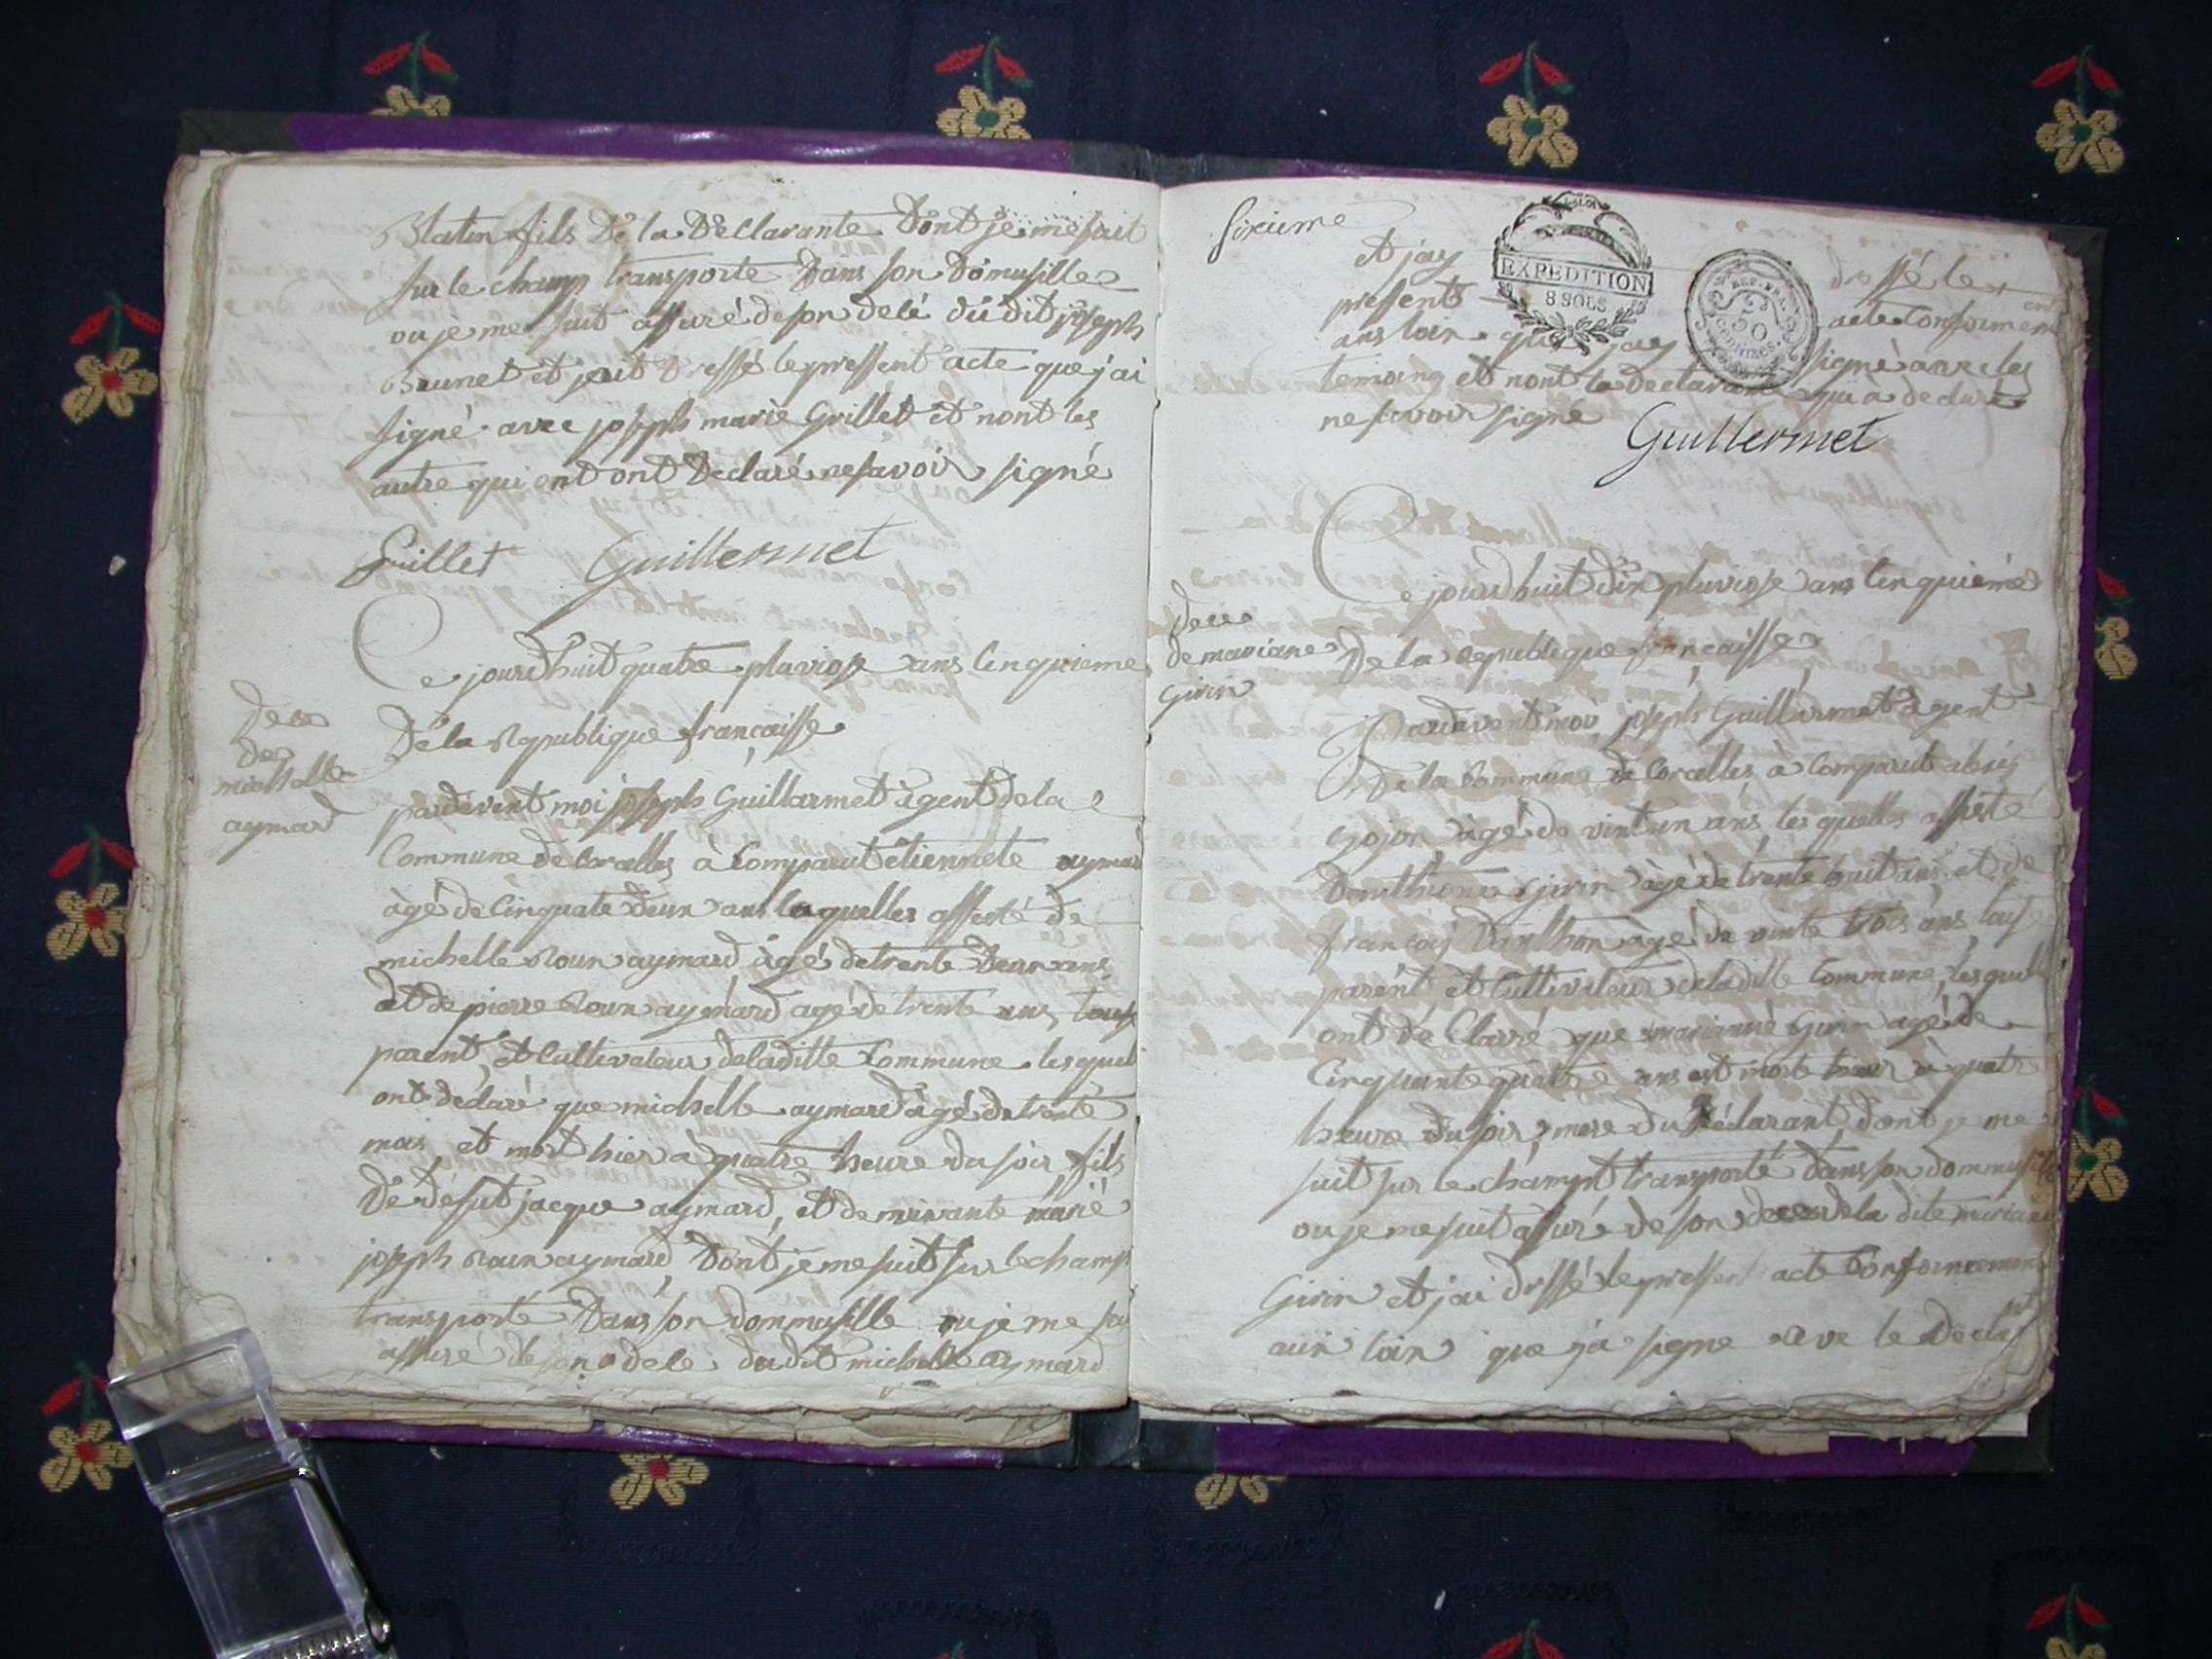 Blatin fils De la Declarante Dont je me suit
sur le champ transporté Dans son Domusille
ou je me suit assuré de son delé du dit joseph
Brunet et jait dressé le pressent acte que j'ai
signé avec joseph marie Grillet et nont les
autre qui ent ont Declaré ne savoir signé
Grillet Guillermet
Ce jourdhuit quatre pluviose ans Cinquieme
De la Republique francaisse
dece
de
michelle
aymard
pardevent moi joseph Guillarmet agent de la
Commune de Corcelles à Comparut etiennete aymard
àgé de Cinquate deux ans laquelles assisté de
michelle Roux aymard àgé de trente Deux ans
et de pierre Roux aymard agé de trente ans, tous
parent, et Cultivateur deladitte Commune lesquel
ont déclaré que michelle aymard àgé de trente
mois et mort hier à quatre heure du soir, fils
De défut jacque aymard, et de marié
joseph Roux aymard, Dont je me suit sur le champ
transporté Dans son dommusille ou je me sui
assuré de son dele du dit michelle aymard
sixieme
et jay dressé le
EXPEDITION
8 SOLS
REP. FRA
50
CENTIMES
pressent acte Conformement
aus loix que jay signé avec les
temoing et nont la Declarante qui a declaré
ne savoir signé
Guillermet
Ce jourdhuit dix pluviose ans Cinquiéme
De la republique francaisse
dece
de mariane
Girin
Pardevent moi joseph Guillarmet agent
De la Commune de Corcelles à Comparut
Gojon àgé de vint un ans, les quelles assisté
Girin àgé de trente huit ans et de
francois àgé de vinte trois ans, tous
parent et Cultivateur deladitte Commune, lesquel
ont déClarré que marianne Girin agé de
Cinquante quatre ans est morte hier à quatre
heure du soir, mere du déclarant, dont je me
suit sur le champt transporté Dans son dommusile
ou je me suit assuré de son deces de la dite mariane
Girin et j'ai dressé le pressent acte Conformement
aux loix que j'a signe ave le Declart